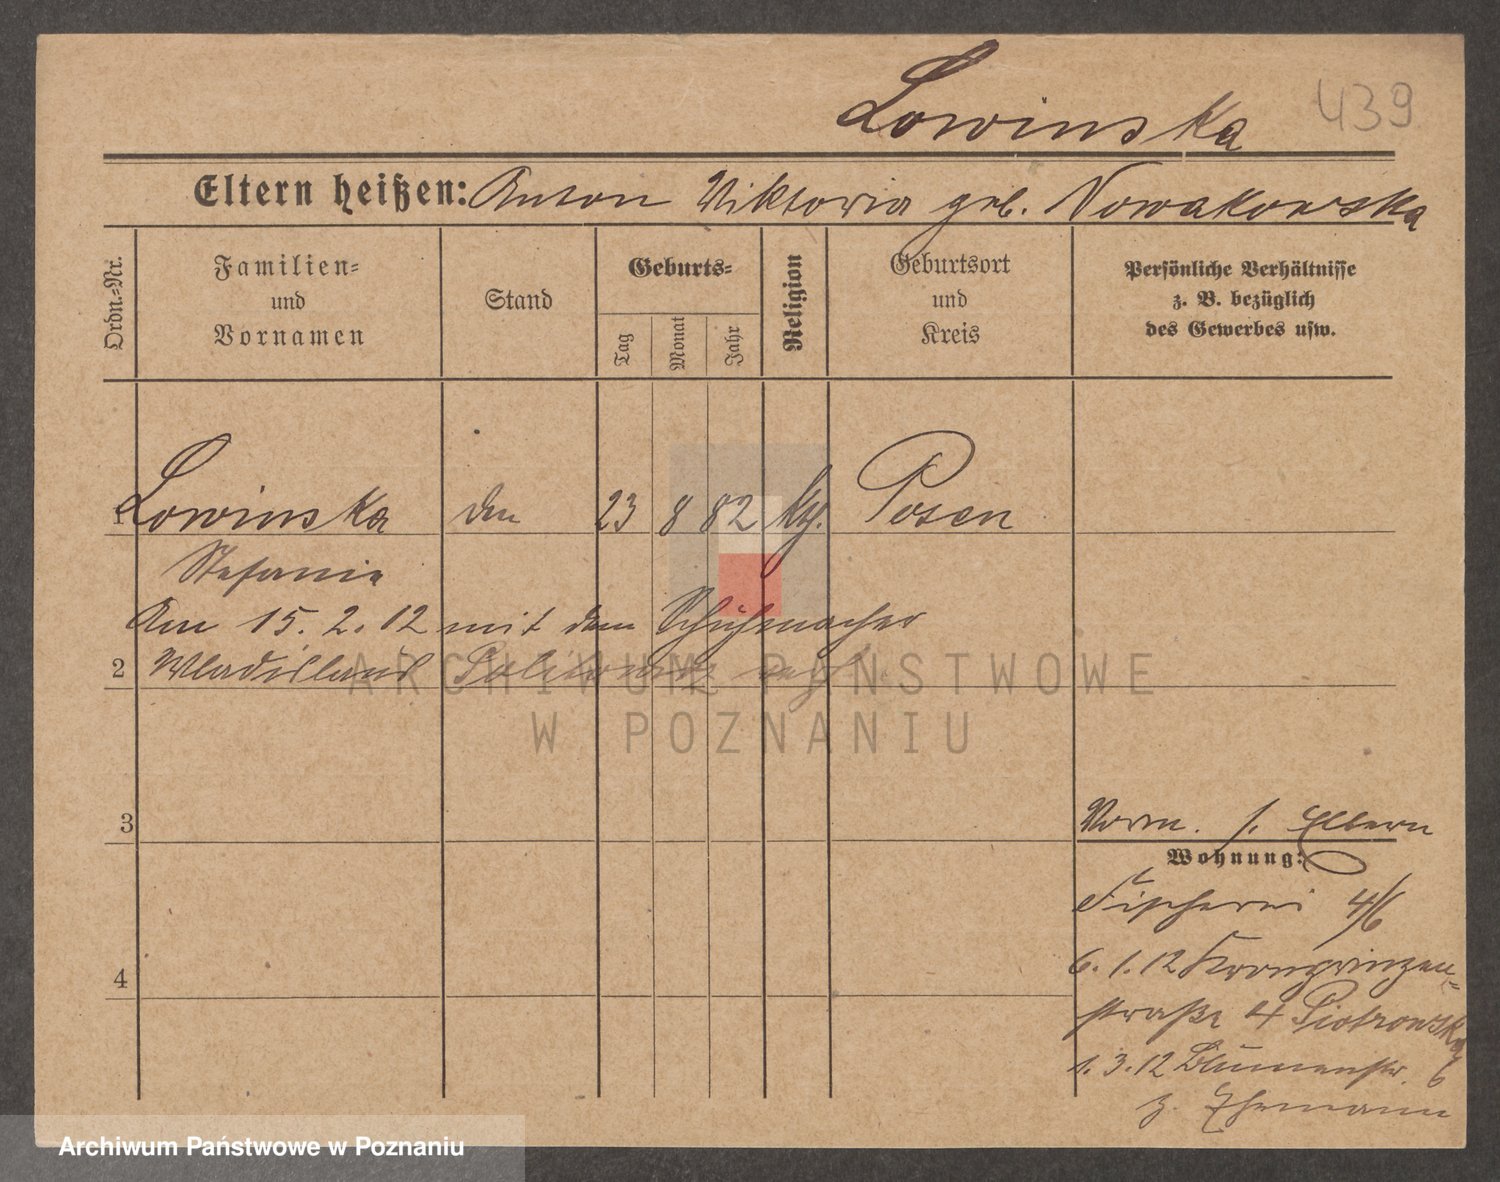 Lowinska 439
Eltern heißen: Anton Viktoria geb. Nowakowska
Ordn.-Nr.
Familien-
und
Vornamen
Stand
Geburts-
Tag
Monat
Jahr
Religion
Geburtsort
und
Kreis
Persönliche Verhältnisse
z. B. bezüglich
des Gewerbes usw.
1 Lowinska den 23 8 82 kth. Posen
Stefania
Am 15. 2. 12 mit dem Schuhmacher
2 Wladislaus verh.
3
Vorm. s. Eltern
Wohnung:
Fischerei 4/6
4
6. 1. 12 Kronprinzen-
straße 4 Piotrowska
1. 3. 12 Blumenstr. 6
z. Ehemann
ARCHIWUM PAŃSTWOWE
W POZNANIU
Archiwum Państwowe w Poznaniu